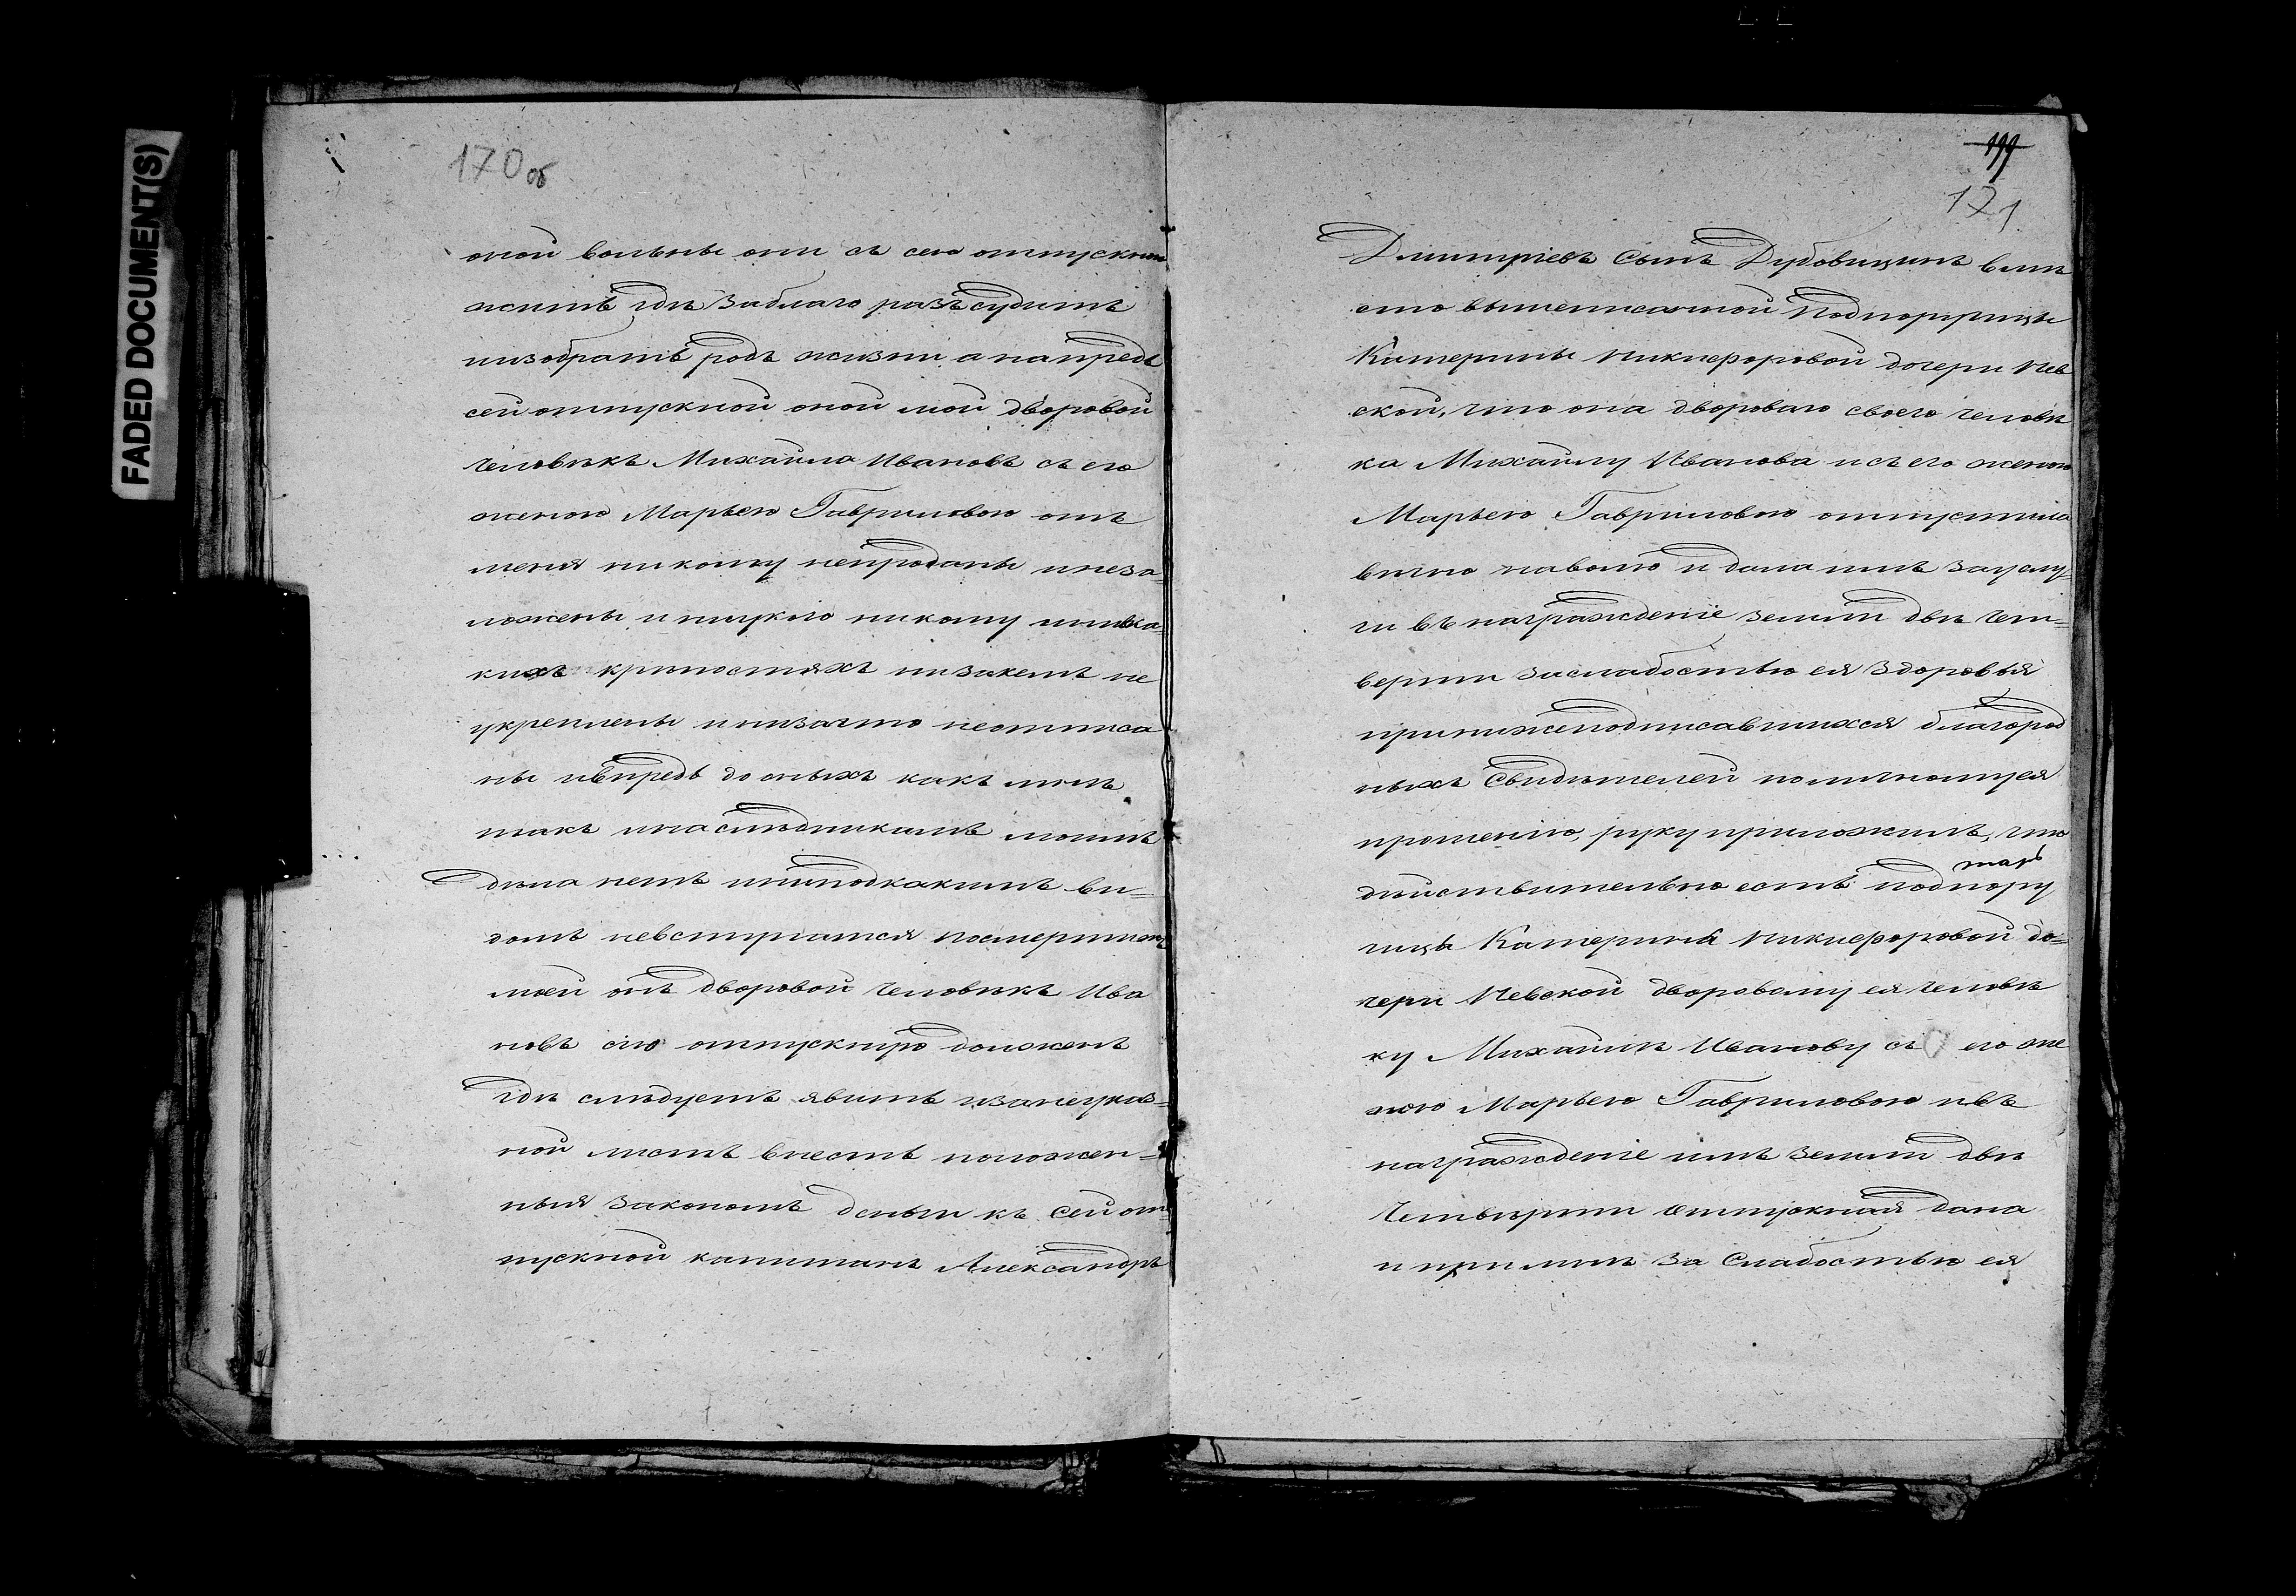 FADED DOCUMENT(S)
170об
оной вольны они съ сею отпускною
жить гдѣ заблаго разъсудитъ
иизобрать родъ жизни а напредь
сей отпускной оной мой дворовой
человѣкъ Михайла Ивановъ съ его
женою Марьею Гавриловою отъ
меня никому непроданы инеза-
ложены и никому ни въка-
кихъ крѣпостяхъ низакемъ не
укреплены и низачто неотписа
ны ивпредь до оныхъ какъ мнѣ
такъ инаслѣдникамъ моимъ
дѣла нетъ ининодкакимъ ви-
домъ невступатся посмерти же
моей онъ дворовой человѣкъ Ива
новъ сію отпускную долженъ
гдѣ слѣдуетъ явить изанеуказ-
ной листъ внесть положен-
ныя закономъ деньги къ сей от-
пускной капитанъ Александръ
199
171
Дмитріевъ сынъ Дубовицинъ вмѣ
сто вышеписанной Подпорутчицы
Катерины Никифоровой дочери Нев
ской, что она двороваго своего человѣ
ка Михайлу Иванова исъ его женою
Марьею Гавриловою отпустила
вѣчно наволю и дала имъ зауслу-
ги въ награжденіе земли двѣ чет-
верти заслабостью ея здоровья
принижеподписавшихся благород
ныхъ свидѣтелей поличному ея
прошенію, руку приложилъ, что
тар
дѣйствительно естъ подпору
чицы Катерины Никифоровой до-
чери Невской дворовому ея человѣ
ку Михайлѣ Иванову съ его же
ною Марьею Гавриловою ивъ
награжденіе имъ земли двѣ
четвѣрти отпускная дана
и при мнѣ за слабостью ея